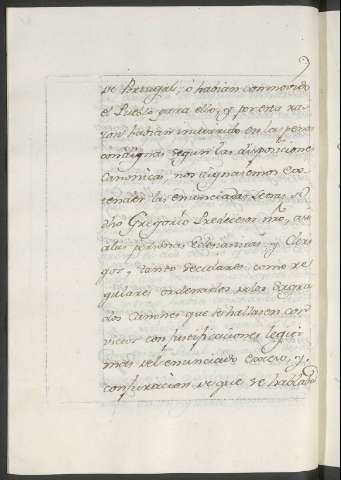 de Portugal, ò habian conmovido
el Pueblo para ello, y por esta ra-
zon habian incurrido en las penas
condignas segun las disposiciones
canonicas, nos dignasemos ex-
tender las enunciadas Letras de
dho Gregorio Predecesor nro, a
personas Eclesiasticas, y Cleri-
gos, tanto seculares como re-
gulares ordenados de los Sagra-
dos Ordenes que se hallasen con-
victos con justificaciones legiti-
mas del enunciado exceso, y
conjuracion de que se ha hablado